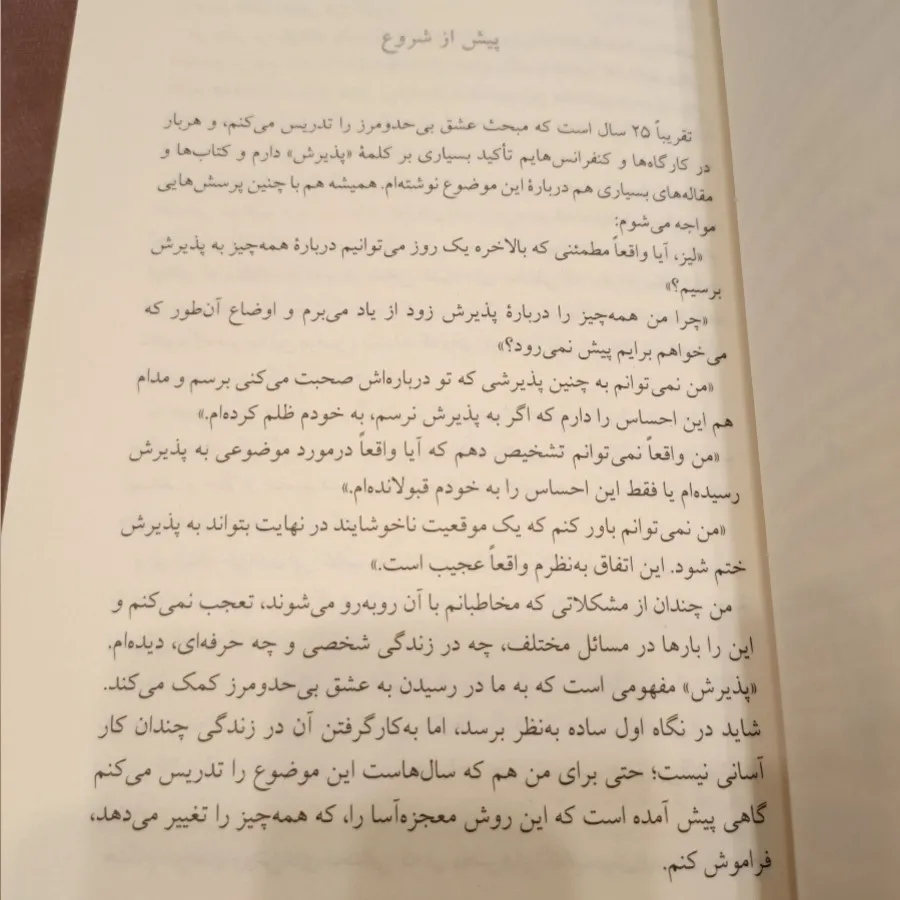 پیش از شروع
تقریباً ۲۵ سال است که مبحث عشق بی‌حدومرز را تدریس می‌کنم، و هربار
در کارگاه‌ها و کنفرانس‌هایم تأکید بسیاری بر کلمهٔ «پذیرش» دارم و کتاب‌ها و
مقاله‌های بسیاری هم دربارهٔ این موضوع نوشته‌ام. همیشه هم با چنین پرسش‌هایی
مواجه می‌شوم:
«لیز، آیا واقعاً مطمئنی که بالاخره یک روز می‌توانیم دربارهٔ همه‌چیز به پذیرش
برسیم؟»
«چرا من همه‌چیز را دربارهٔ پذیرش زود از یاد می‌برم و اوضاع آن‌طور که
می‌خواهم برایم پیش نمی‌رود؟»
«من نمی‌توانم به چنین پذیرشی که تو درباره‌اش صحبت می‌کنی برسم و مدام
هم این احساس را دارم که اگر به پذیرش نرسم، به خودم ظلم کرده‌ام.»
«من واقعاً نمی‌توانم تشخیص دهم که آیا واقعاً درمورد موضوعی به پذیرش
رسیده‌ام یا فقط این احساس را به خودم قبولانده‌ام.»
«من نمی‌توانم باور کنم که یک موقعیت ناخوشایند در نهایت بتواند به پذیرش
ختم شود. این اتفاق به‌نظرم واقعاً عجیب است.»
من چندان از مشکلاتی که مخاطبانم با آن روبه‌رو می‌شوند، تعجب نمی‌کنم و
این را بارها در مسائل مختلف، چه در زندگی شخصی و چه حرفه‌ای، دیده‌ام.
«پذیرش» مفهومی است که به ما در رسیدن به عشق بی‌حدومرز کمک می‌کند.
شاید در نگاه اول ساده به‌نظر برسد، اما به‌کارگرفتن آن در زندگی چندان کار
آسانی نیست؛ حتی برای من هم که سال‌هاست این موضوع را تدریس می‌کنم
گاهی پیش آمده است که این روش معجزه‌آسا را، که همه‌چیز را تغییر می‌دهد،
فراموش کنم.